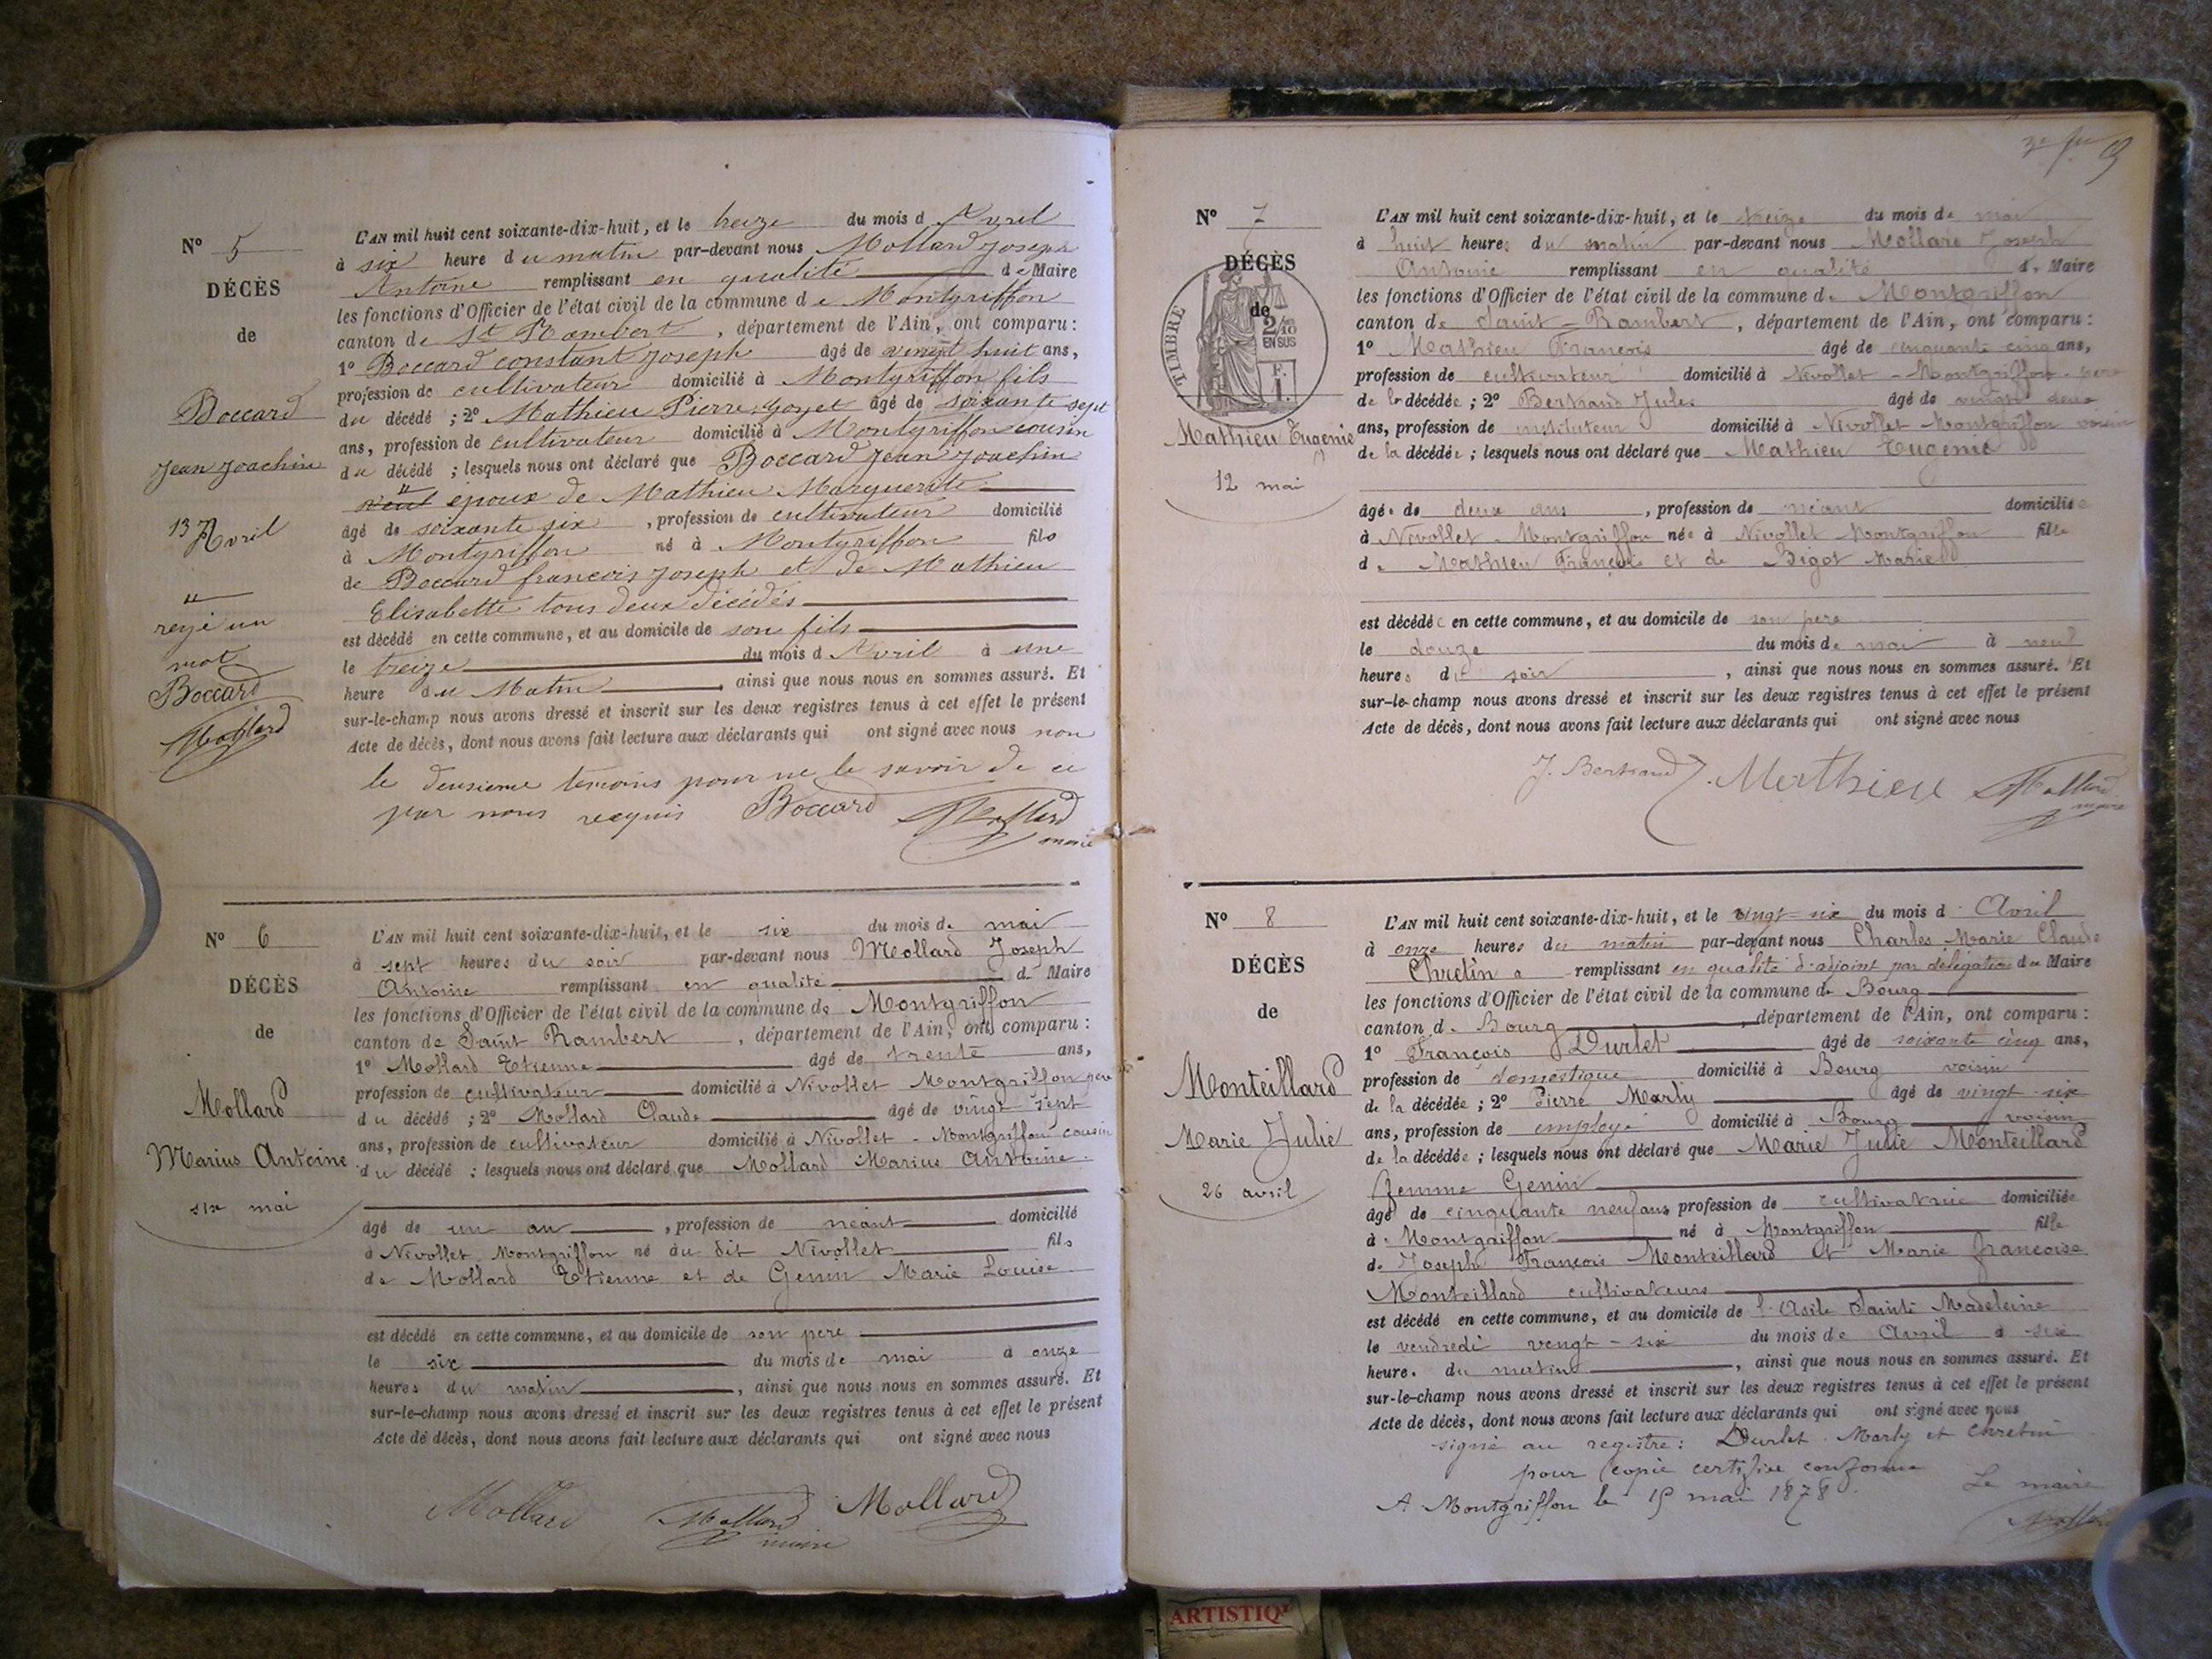 Nº 5
DÉCÈS
de
Boccard
Jean Joachim
13 Avril
rejé un
mot
Boccard
Mollard
L'AN mil huit cent soixante-dix-huit, et le treize du mois d Avril
à six heure du matin par-devant nous Mollard Joseph
Antoine remplissant en qualité de Maire
les fonctions d'Officier de l'état civil de la commune de Montgriffon
canton de St Rambert, département de l'Ain, ont comparu :
1º Boccard constant Joseph âgé de vingt huit ans,
profession de cultivateur domicilié à Montgriffon fils
du décédé ; 2º Mathieu Pierre âgé de soixante sept
ans, profession de cultivateur domicilié à Montgriffon cousin
du décédé ; lesquels nous ont déclaré que Boccard Jean Joachim
époux de Mathieu Marguerite
âgé de soixante six, profession de cultivateur domicilié
à Montgriffon né à Montgriffon fils
de Boccard francois Joseph et de Mathieu
Elisabette tous deux décédés
est décédé en cette commune, et au domicile de son fils
le treize du mois d Avril à une
heure du Matin, ainsi que nous nous en sommes assuré. Et
sur-le-champ nous avons dressé et inscrit sur les deux registres tenus à cet effet le présent
Acte de décès, dont nous avons fait lecture aux déclarants qui ont signé avec nous non
le deusieme temoins pour ne le savoir de ce
par nous requis Boccard Mollard
maire
Nº 6
DÉCÈS
de
Mollard
Marius Antoine
six mai
L'AN mil huit cent soixante-dix-huit, et le six du mois de mai
à sept heures du soir par-devant nous Mollard Joseph
Antoine remplissant en qualité de Maire
les fonctions d'Officier de l'état civil de la commune de Montgriffon
canton de Saint Rambert, département de l'Ain, ont comparu :
1º Mollard Etienne âgé de trente ans,
profession de cultivateur domicilié à Nivollet Montgriffon père
du décédé ; 2º Mollard Claude âgé de vingt sept
ans, profession de cultivateur domicilié à Nivollet - Montgriffon cousin
du décédé ; lesquels nous ont déclaré que Mollard Marius Antoine
âgé de un an, profession de néant domicilié
à Nivollet Montgriffon né au dit Nivollet fils
de Mollard Etienne et de Genin Marie Louise
est décédé en cette commune, et au domicile de son père
le six du mois de mai à onze
heures du matin, ainsi que nous nous en sommes assuré. Et
sur-le-champ nous avons dressé et inscrit sur les deux registres tenus à cet effet le présent
Acte de décès, dont nous avons fait lecture aux déclarants qui ont signé avec nous
Mollard Mollard Mollard
maire
Nº 7
DÉCÈS
de
TIMBRE
2/10
EN SUS
F.
1.
Mathieu Eugénie
12 mai
L'AN mil huit cent soixante-dix-huit, et le treize du mois de mai
à huit heures du matin par-devant nous Mollard Joseph
Antoine remplissant en qualité de Maire
les fonctions d'Officier de l'état civil de la commune de Montgriffon
canton de Saint - Rambert, département de l'Ain, ont comparu :
1º Mathieu François âgé de cinquante cinq ans,
profession de cultivateur domicilié à Nivollet - Montgriffon père
de la décédée ; 2º Bertrand Jules âgé de vingt deux
ans, profession de instituteur domicilié à Nivollet Montgriffon voisin
de la décédée ; lesquels nous ont déclaré que Mathieu Eugénie
âgée de deux ans, profession de néant domiciliée
à Nivollet - Montgriffon née à Nivollet Montgriffon fille
de Mathieu François et de Bigot Marie
est décédée en cette commune, et au domicile de son père
le douze du mois de mai à neuf
heures du soir, ainsi que nous nous en sommes assuré. Et
sur-le-champ nous avons dressé et inscrit sur les deux registres tenus à cet effet le présent
Acte de décès, dont nous avons fait lecture aux déclarants qui ont signé avec nous
J. Bertrand Mathieu Mollard
maire
Nº 8
DÉCÈS
de
Monteillard
Marie Julie
26 avril
L'AN mil huit cent soixante-dix-huit, et le vingt-six du mois d Avril
à onze heures du matin par-devant nous Charles Marie Claude
Chretin remplissant en qualité d'adjoint par délégation du Maire
les fonctions d'Officier de l'état civil de la commune de Bourg
canton de Bourg, département de l'Ain, ont comparu :
1º François Durlet âgé de soixante cinq ans,
profession de domestique domicilié à Bourg voisin
de la décédée ; 2º Pierre Marly âgé de vingt-six
ans, profession de employé domicilié à Bourg voisin
de la décédée ; lesquels nous ont déclaré que Marie Julie Monteillard
femme Genin
âgé de cinquante neuf ans, profession de cultivatrice domiciliée
à Montgriffon né à Montgriffon fille
de Joseph François Monteillard et Marie françoise
Monteillard cultivateurs
est décédé en cette commune, et au domicile de l'Asile Sainte Madeleine
le vendredi vingt-six du mois de Avril à six
heure. du matin, ainsi que nous nous en sommes assuré. Et
sur-le-champ nous avons dressé et inscrit sur les deux registres tenus à cet effet le présent
Acte de décès, dont nous avons fait lecture aux déclarants qui ont signé avec nous
signé au registre : Durlet Marly et Chretin
pour copie certifiée conforme
A Montgriffon le 15 mai 1878. Le maire
Mollard
ARTISTIQ